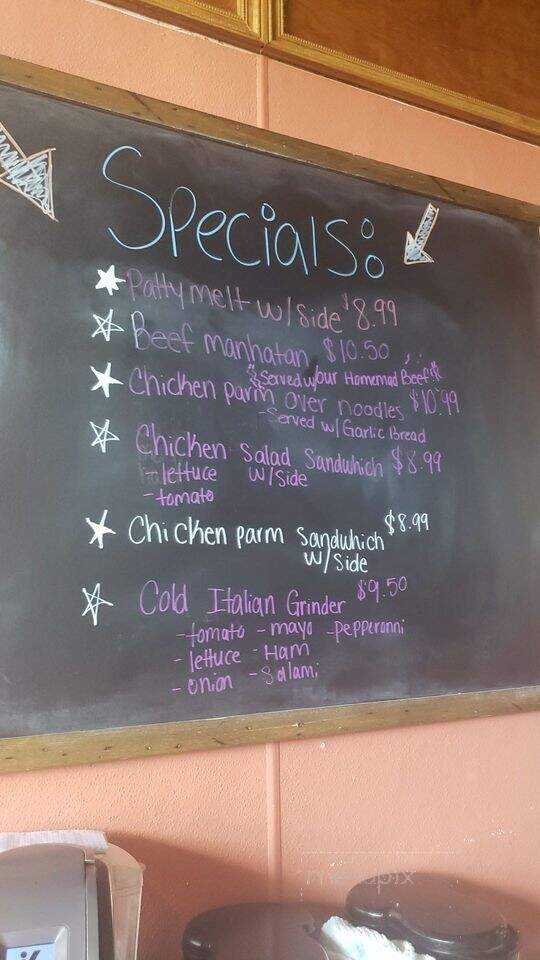 Specials:
Patty melt w/side $8.99
Beef manhatan $10.50
"Served w/our Homemad Beef"
Chicken parm over noodles $10.99
-Served w/ Garlic Bread
Chicken Salad Sandwhich $8.99
-lettuce w/side
-tomato
Chicken parm Sandwhich $8.99
w/side
Cold Italian Grinder $9.50
-tomato -mayo -Pepperonni
-lettuce -Ham
-onion -Salami